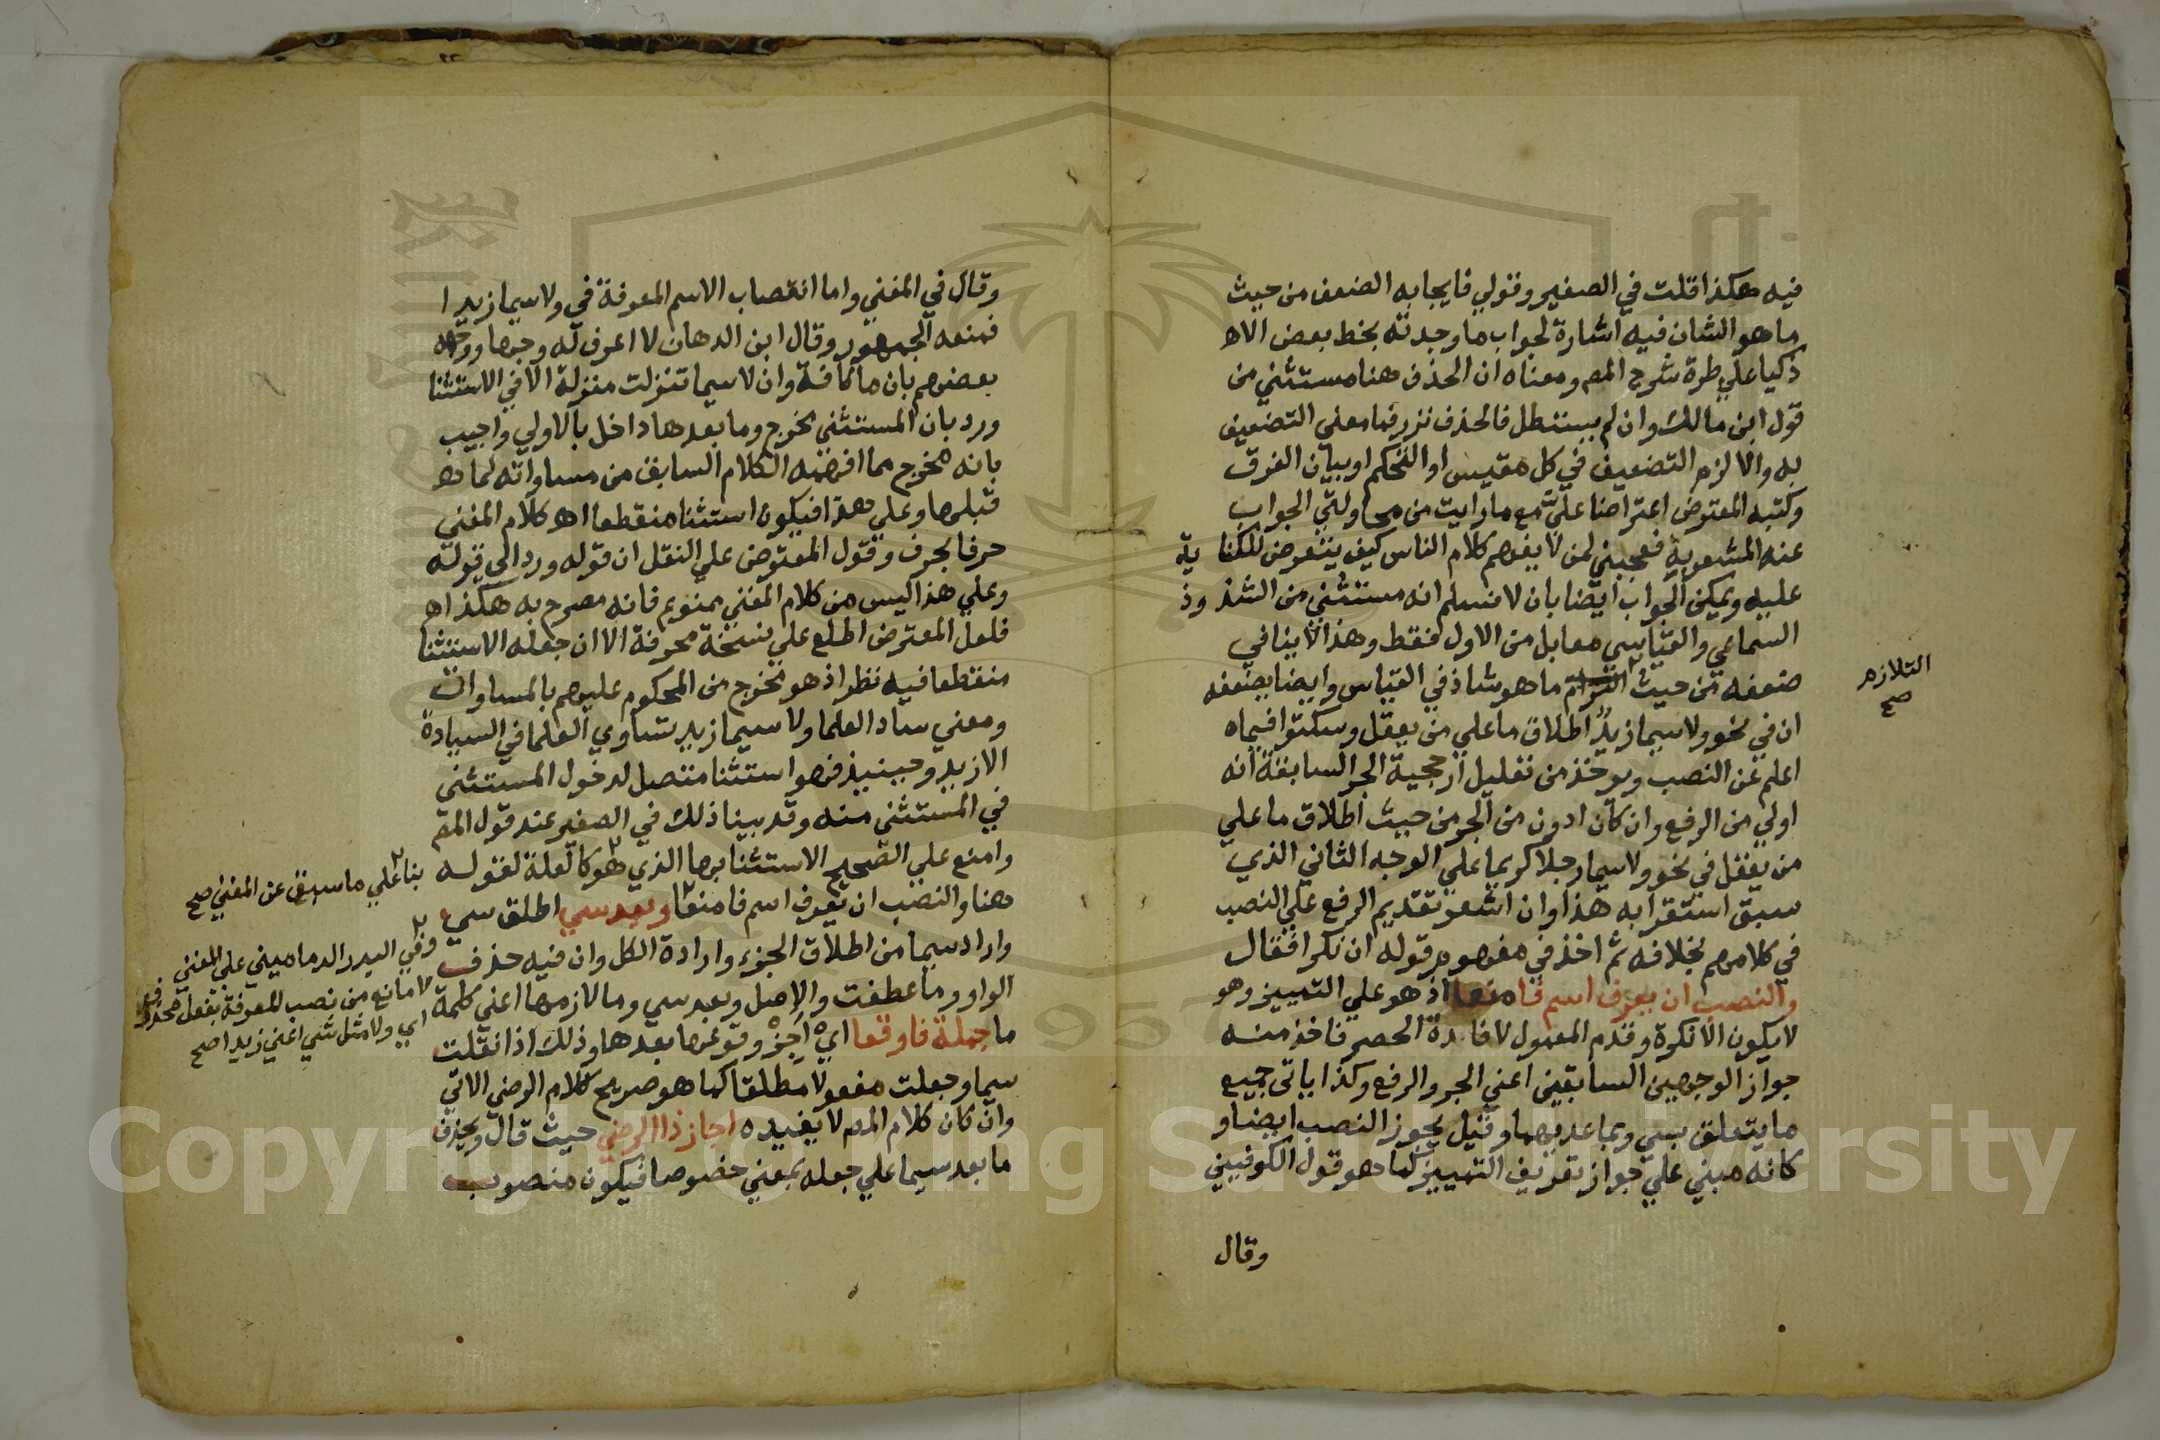 فيه هكذا قلت في الصغير وقولي فايجابه الضعف من حيث
ما هو الشان فيه اشارة لجواب ما وجدته بخط بعض الاه
ذكيا علي طرة شرح المص ومعناه ان الحذف هنا مستثني من
قول ابن مالك وان لم يستطل فالحذف نزر فما معني التضعيف
به والا لزم التضعيف في كل مقيس او التحكم او بيان الفرق
وكتبه المعترض اعتراضا علي مع ما رايت من محاولتي الجواب
عنه المشعر به فعجبني لمن لا يفهم كلام الناس كيف يتعرض للكتا ية
عليه ويمكن الجواب ايضا بان لا نسلم انه مستثني من الشذ وذ
السماعي والقياسي معا بل من الاول فقط وهذا لا ينافي
ضعفه من حيث التزام ما هو شاذ في القياس وايضا يضعفه
التلازم
صح
ان في نحو ولا سيما زيد اطلاق ما علي من يعقل وسكتوا فيما ه
اعلم عن النصب ويوخذ من تعليل ارجحية الجر السابقة انه
اولي من الرفع وان كان ادون من الجر من حيث اطلاق ما علي
من يعقل في نحو ولا سيما رجلا كريما علي الوجه الثاني الذي
سبق استقرابه هذا وان اشعر تقديم الرفع علي النصب
في كلامهم بخلافه ثم اخذ في مفهوم قوله ان نكرا فقال
والنصب ان يعرف اسم فامنعا اذ هو علي التمييز وهو
لا يكون الا نكرة وقدم المعمول لافادة الحصر فاخذ منه
جواز الوجهين السابقين اعني الجر والرفع وكذا ياتي جميع
ما يتعلق بسي وبما عديهما وقيل يجوز النصب ايضا و
كانه مبني علي جواز تعريف التمييز كما هو قول الكوفيين
وقال
وقال في المغني واما انتصاب الاسم المعرفة في ولا سيما زيد ا
فمنعه الجمهور وقال ابن الدهان لا اعرف له وجها ووجهه
بعضهم بان ما كافة وان لا سيما تنزلت منزلة الا في الاستثنا
ورد بان المستثني مخرج وما بعدها داخل بالاولي واجيب
بانه مخرج مما افهمه الكلام السابق من مساواته لما ه
قبلها وعلي هذا فيكون استثنا منقطعا اهـ كلام المغني
حرفا بحرف وقول المعترض علي النقل ان قوله ورد الي قوله
وعلي هذا ليس من كلام المغني ممنوع فانه مصرح به هكذا اه
فلعل المعترض اطلع علي نسخة محرفة الا ان جعله الاستثنا
منقطعا فيه نظر اذ هو مخرج من المحكوم عليهم بالمساوات
ومعني ساد العلما ولا سيما زيد تساوي العلما في السيادة
الا زيد وحينيذ فهو استثنا متصل لدخول المستثني
في المستثني منه وقد بينا ذلك في الصغير عند قول المص
وامنع علي الصحيح الاستثنا بها الذي هو كالعلة لقوله
بنا علي ما سبق عن المغني صح
هنا والنصب ان يعرف اسم فامنعا وبعد سي اطلق سي
واراد سيما من اطلاق الجزء وارادة الكل وان فيه حذف
وفي البدر الدماميني علي المغني
لا مانع من نصب المعرفة بفعل محذوف
اي ولا مثل شي اعني زيدا صح
الواو وما عطفت والاصل وبعد سي وما لازمها اعني كلمة
ما جملة فاوقعا اي اجز وقوعها بعدها وذلك اذا نقلت
سيما وجعلت مفعولا مطلقا كما هو صريح كلام الرضي الاتي
وان كان كلام المص لا يفيده اجاز ذا الرضي حيث قال ويحذف
ما بعد سيما علي جعله بمعني خصوصا فيكون منصوب